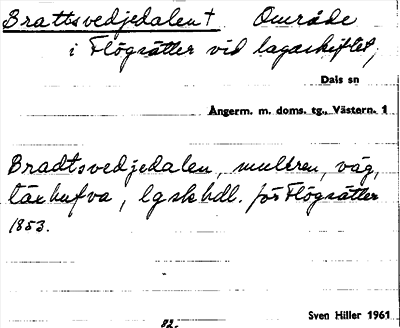 Brattsvedjedalen † Område
i Flögsätter vid lagaskiftet,
Dals sn
Ångerm. m. doms. tg., Västern. 1
Bradtsvedjedalen, multren, väg,
täxhufva, lgskhdl. för Flögsätter
1853.
Sven Hiller 1961
82.